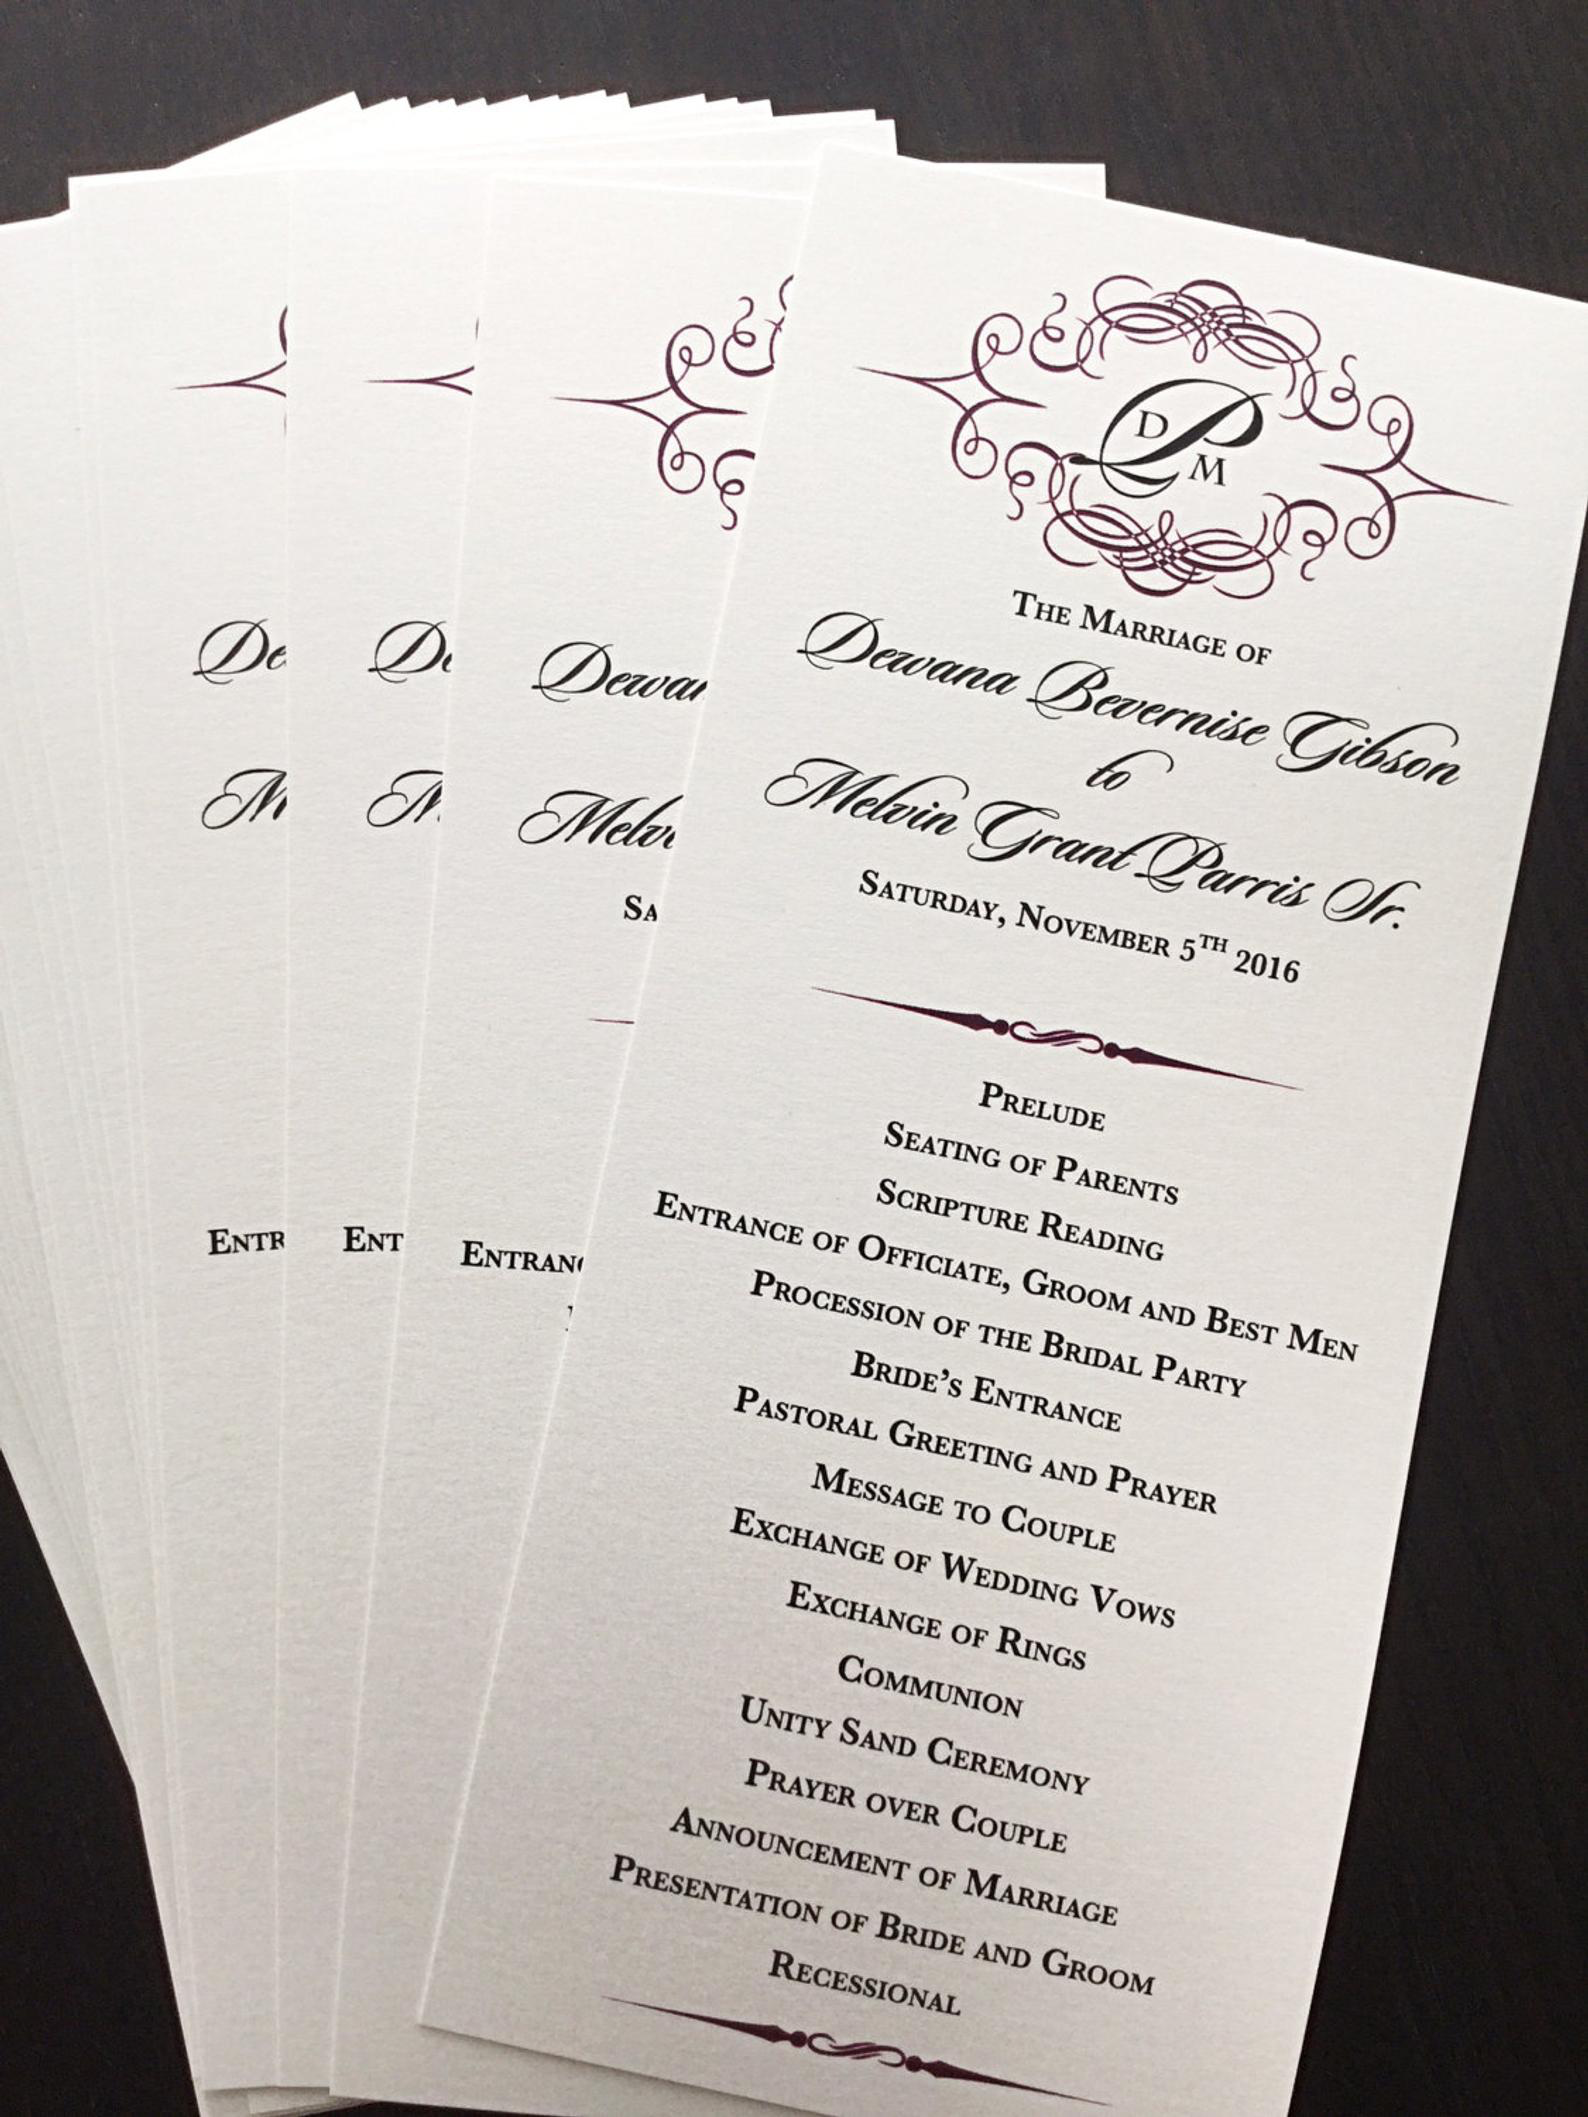 D P M
The Marriage of
Dewana Bevernise Gibson
to
Melvin Grant Parris Sr.
Saturday, November 5th 2016
Prelude
Seating of Parents
Scripture Reading
Entrance of Officiate, Groom and Best Men
Procession of the Bridal Party
Bride's Entrance
Pastoral Greeting and Prayer
Message to Couple
Exchange of Wedding Vows
Exchange of Rings
Communion
Unity Sand Ceremony
Prayer over Couple
Announcement of Marriage
Presentation of Bride and Groom
Recessional